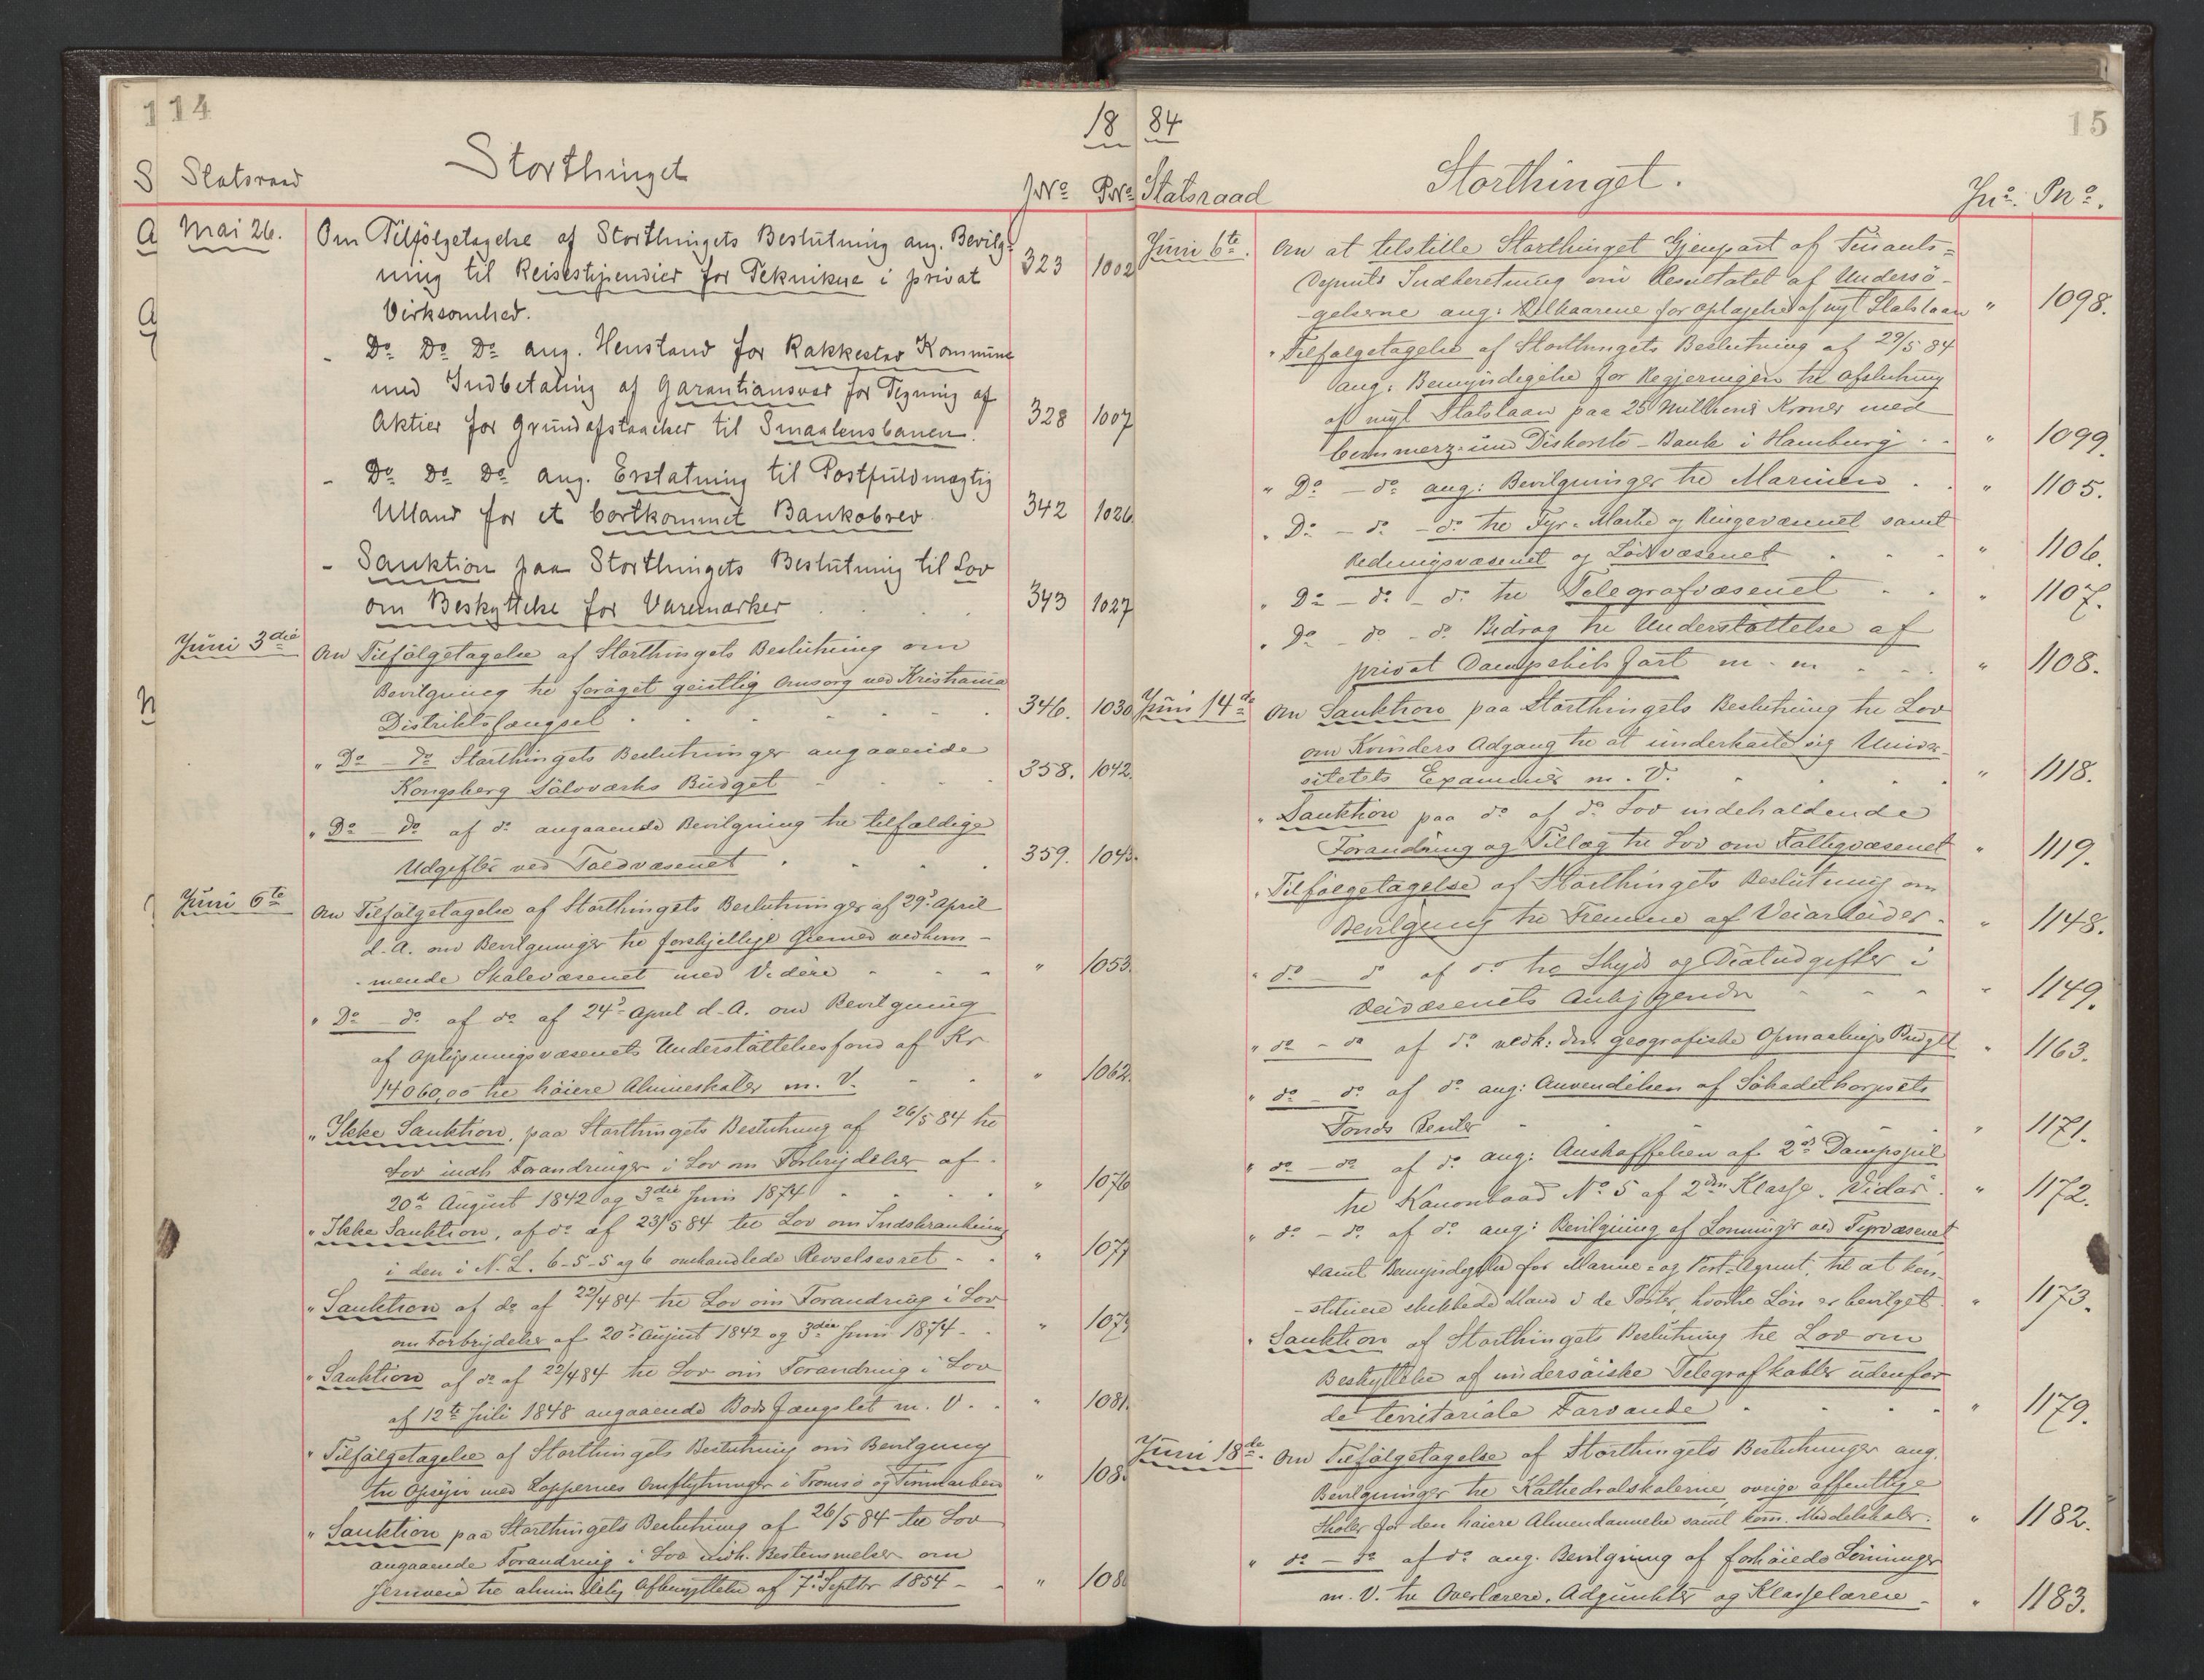 114
18
Statsraad
Storthinget
JNo PNo
Mai 26.
Om Tilfölgetagelse af Storthingets Beslutning ang. Bevilg-
ning til Reisestipendier for Teknikere i privat
323 1002
Virksomhed.
- Do Do Do ang. Henstand for Rakkestad Kommune
med Indbetaling af Garantiansvar for Tegning af
Aktier for Grundafstaaelser til Smaalensbanen.
328 1007
- Do Do Do ang. Erstatning til Postfuldmægtig
Ulland for et bortkommet Bankobrev
342 1026
- Sanktion paa Storthingets Beslutning til Lov
om Beskyttelse for Varemærker
343 1027
Juni 3die
Om Tilfölgetagelse af Storthingets Beslutning om
Bevilgning til foröget geistlig Omsorg ved Kristiania
Distriktsfængsel
346. 1030
" Do - do Storthingets Beslutninger angaaende
Kongsberg Sölvværks Budget
358. 1042.
" Do - do af do angaaende Bevilgning til tilfældige
Udgifter ved Toldvæsenet
359. 1043.
Juni 6te
Om Tilfölgetagelse af Storthingets Beslutninger af 29de April
d. A. om Bevilgninger til forskjellige Öiemed vedkom-
mende Skolevæsenet med Videre
" 1053.
" Do - do af do af 24de April d. A. om Bevilgning
af Oplysningsvæsenets Understöttelsesfond af Kr
14060,00 til höiere Almueskoler m. V.
" 1062.
" Ikke Sanktion, paa Storthingets Beslutning af 26/5 84 til
Lov indh. Forandringer i Lov om Forbrydelser af
20de August 1842 og 3die Juni 1874
" 1076
" Ikke Sanktion, af do af 23/5 84 til Lov om Indskrænkning
i den i N. L. 6-5-5 og 6 omhandlede Revselsesret
" 1077
" Sanktion af do af 22/4 84 til Lov om Forandring i Lov
om Forbrydelser af 20de August 1842 og 3die Juni 1874
" 1079
" Sanktion af do af 22/4 84 til Lov om Forandring i Lov
af 12te Juli 1848 angaaende Bodsfængslet m. V.
" 1081.
" Tilfölgetagelse af Storthingets Beslutning om Bevilgning
til Opsyn med Lappernes Omflytninger i Tromsö og Finmarken
" 108
" Sanktion paa Storthingets Beslutning af 26/5 84 til Lov
angaaende Forandring i Lov indh. Bestemmelser om
Jernveie til almindelig Afbenyttelse af 7de Septbr 1854
" 108
84
15
Statsraad
Storthinget.
Jno. Pno.
Juni 6te.
Om at tilstille Storthinget Gjenpart af Finants-
Depmts Indberetning om Resultatet af Undersö-
-gelserne ang: Vilkaarene for Optagelse af nyt Statslaan
" 1098.
" Tilfölgetagelse af Storthingets Beslutning af 29/5 84
ang: Bemyndigelse for Regjeringen til Afslutning
af nyt Statslaan paa 25 Millioner Kroner med
Commerz- und Diskonto-Bank i Hamburg
" 1099.
" Do - do ang: Bevilgninger til Marinen
" 1105.
" Do - do - do til Fyr- Mærke og Ringevæsenet samt
Redningsvæsenet og Lodsvæsenet
" 1106.
" Do - do - do til Telegrafvæsenet
" 1107.
" Do - do - do Bidrag til Understöttelse af
privat Dampskibsfart m. m.
" 1108.
Juni 14de
Om Sanktion paa Storthingets Beslutning til Lov
om Kvinders Adgang til at underkaste sig Univer-
sitetets Examiner m. V.
" 1118.
" Sanktion paa do af do Lov indeholdende
Forandring og Tillæg til Lov om Fattigvæsenet
" 1119.
" Tilfölgetagelse af Storthingets Beslutning om
Bevilgning til Fremme af Veiarbeider
" 1148.
" do - do af do til Skyds og Diætudgifter i
Veivæsenets Anliggender
" 1149.
" do - do af do vedk: den geografiske Opmaalings Budget
" 1163.
" do - do af do ang: Anvendelsen af Sökadetkorpsets
Fonds Renter
" 1171.
" do - do af do ang: Anskaffelsen af 2de Dampspil
til Kanonbaad No 5 af 2den Klasse "Vidar"
" 1172.
" do - do af do ang: Bevilgning af Lönninger ved Fyrvæsenet
samt Bemyndigelse for Marine- og Post-Depmt. til at kon-
-stituere skikkede Mænd i de Poster, hvortil Lön er bevilget
" 1173.
" Sanktion af Storthingets Beslutning til Lov om
Beskyttelse af undersöiske Telegrafkabler udenfor
de territoriale Farvande
" 1179.
Juni 18de.
Om Tilfölgetagelse af Storthingets Beslutninger ang.
Bevilgninger til Kathedralskolerne, övrige offentlige
Skoler for den höiere Almendannelse samt kom. Middelskoler.
" 1182.
" do - do af do ang. Bevilgning af forhöiede Lönninger
m. V. til Overlærere, Adjunkter og Klasselærere
" 1183.